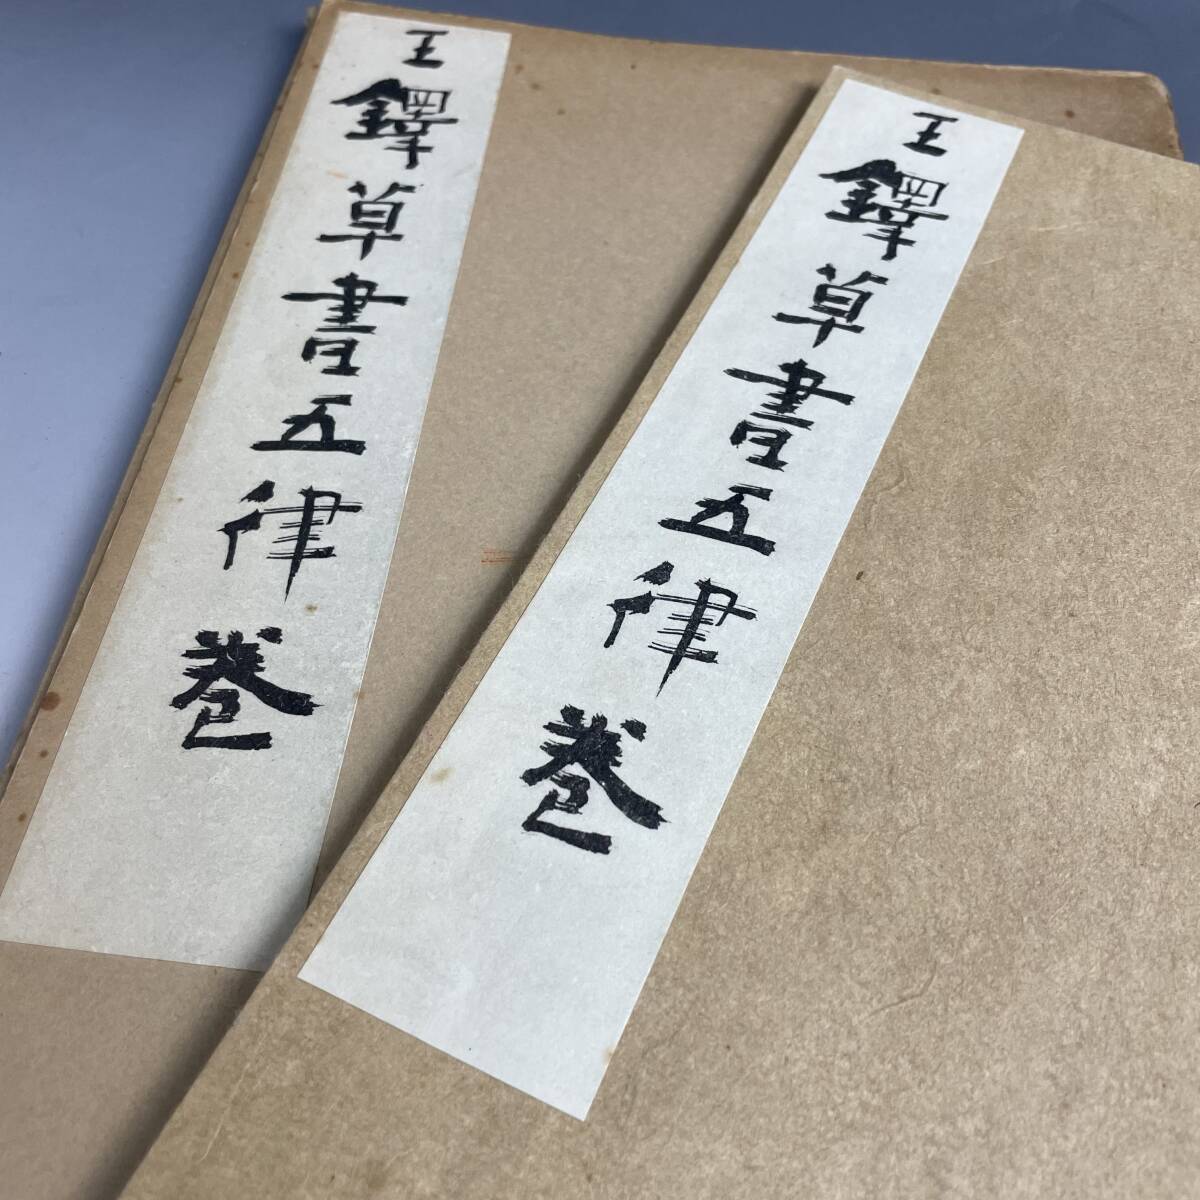 王鐸草書五律卷
王鐸草書五律卷